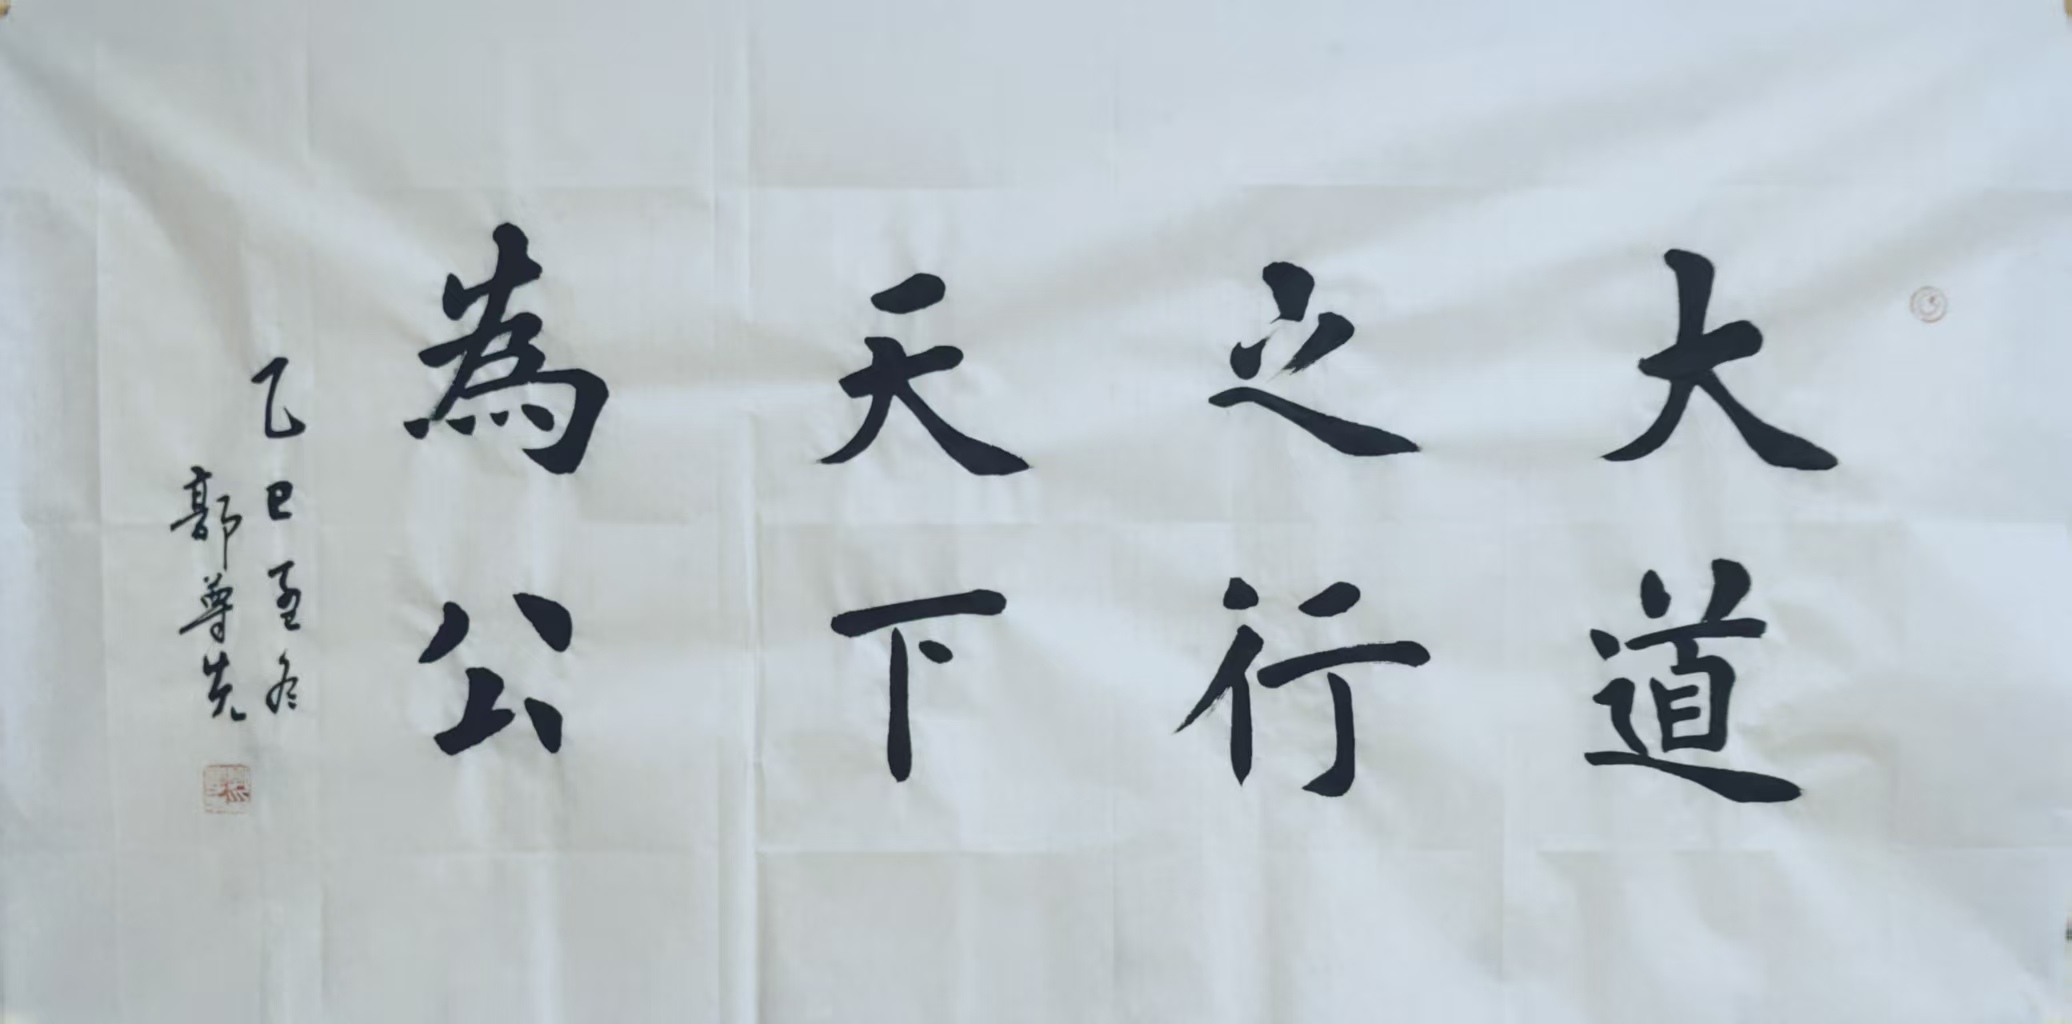 大道
之行
天下
為公
乙巳孟冬
郭尊先